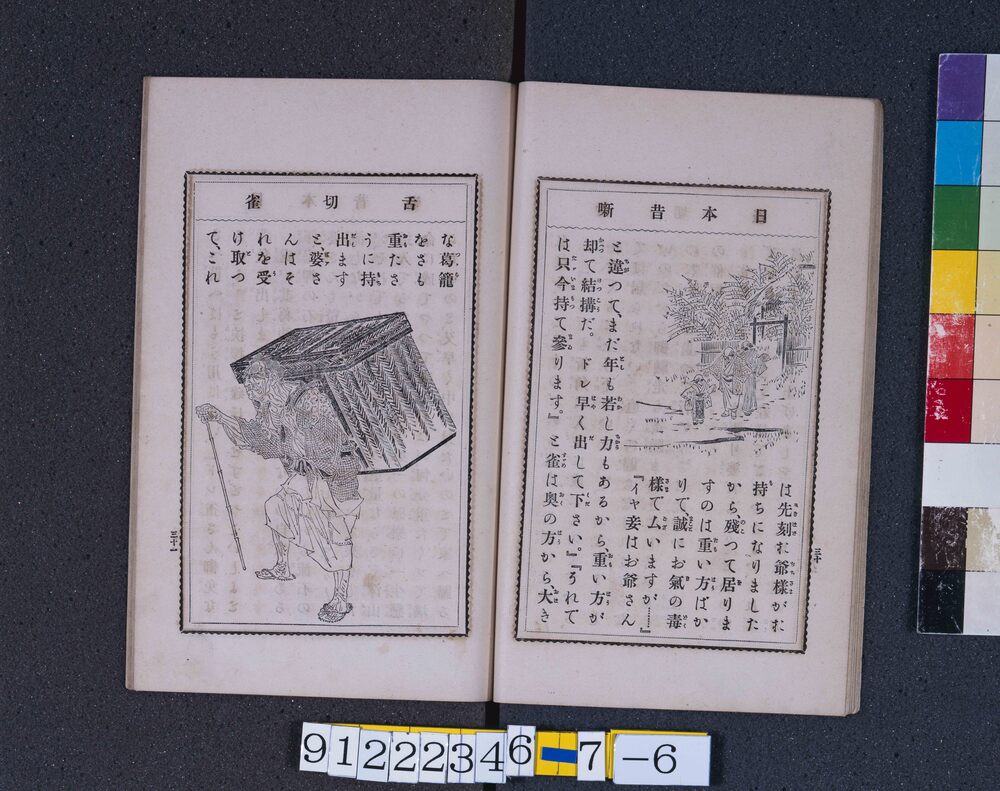 日本昔噺
は先刻お爺樣がお
持ちになりました
から、殘つて居りま
すのは重い方ばか
りで、誠にお氣の毒
樣で厶いますが……』
『イヤ妾はお爺さん
と違つて、まだ年も若し力もあるから、重い方が
却て結搆だ。ドレ早く出して下さい。』『それで
は只今持て參ります。』と雀は奥の方から、大き
三十
舌切雀
な葛籠
をさも
重たさ
うに持
出ます
と婆さ
んはそ
れを受
け取つ
て、これ
三十一
91222346-7-6